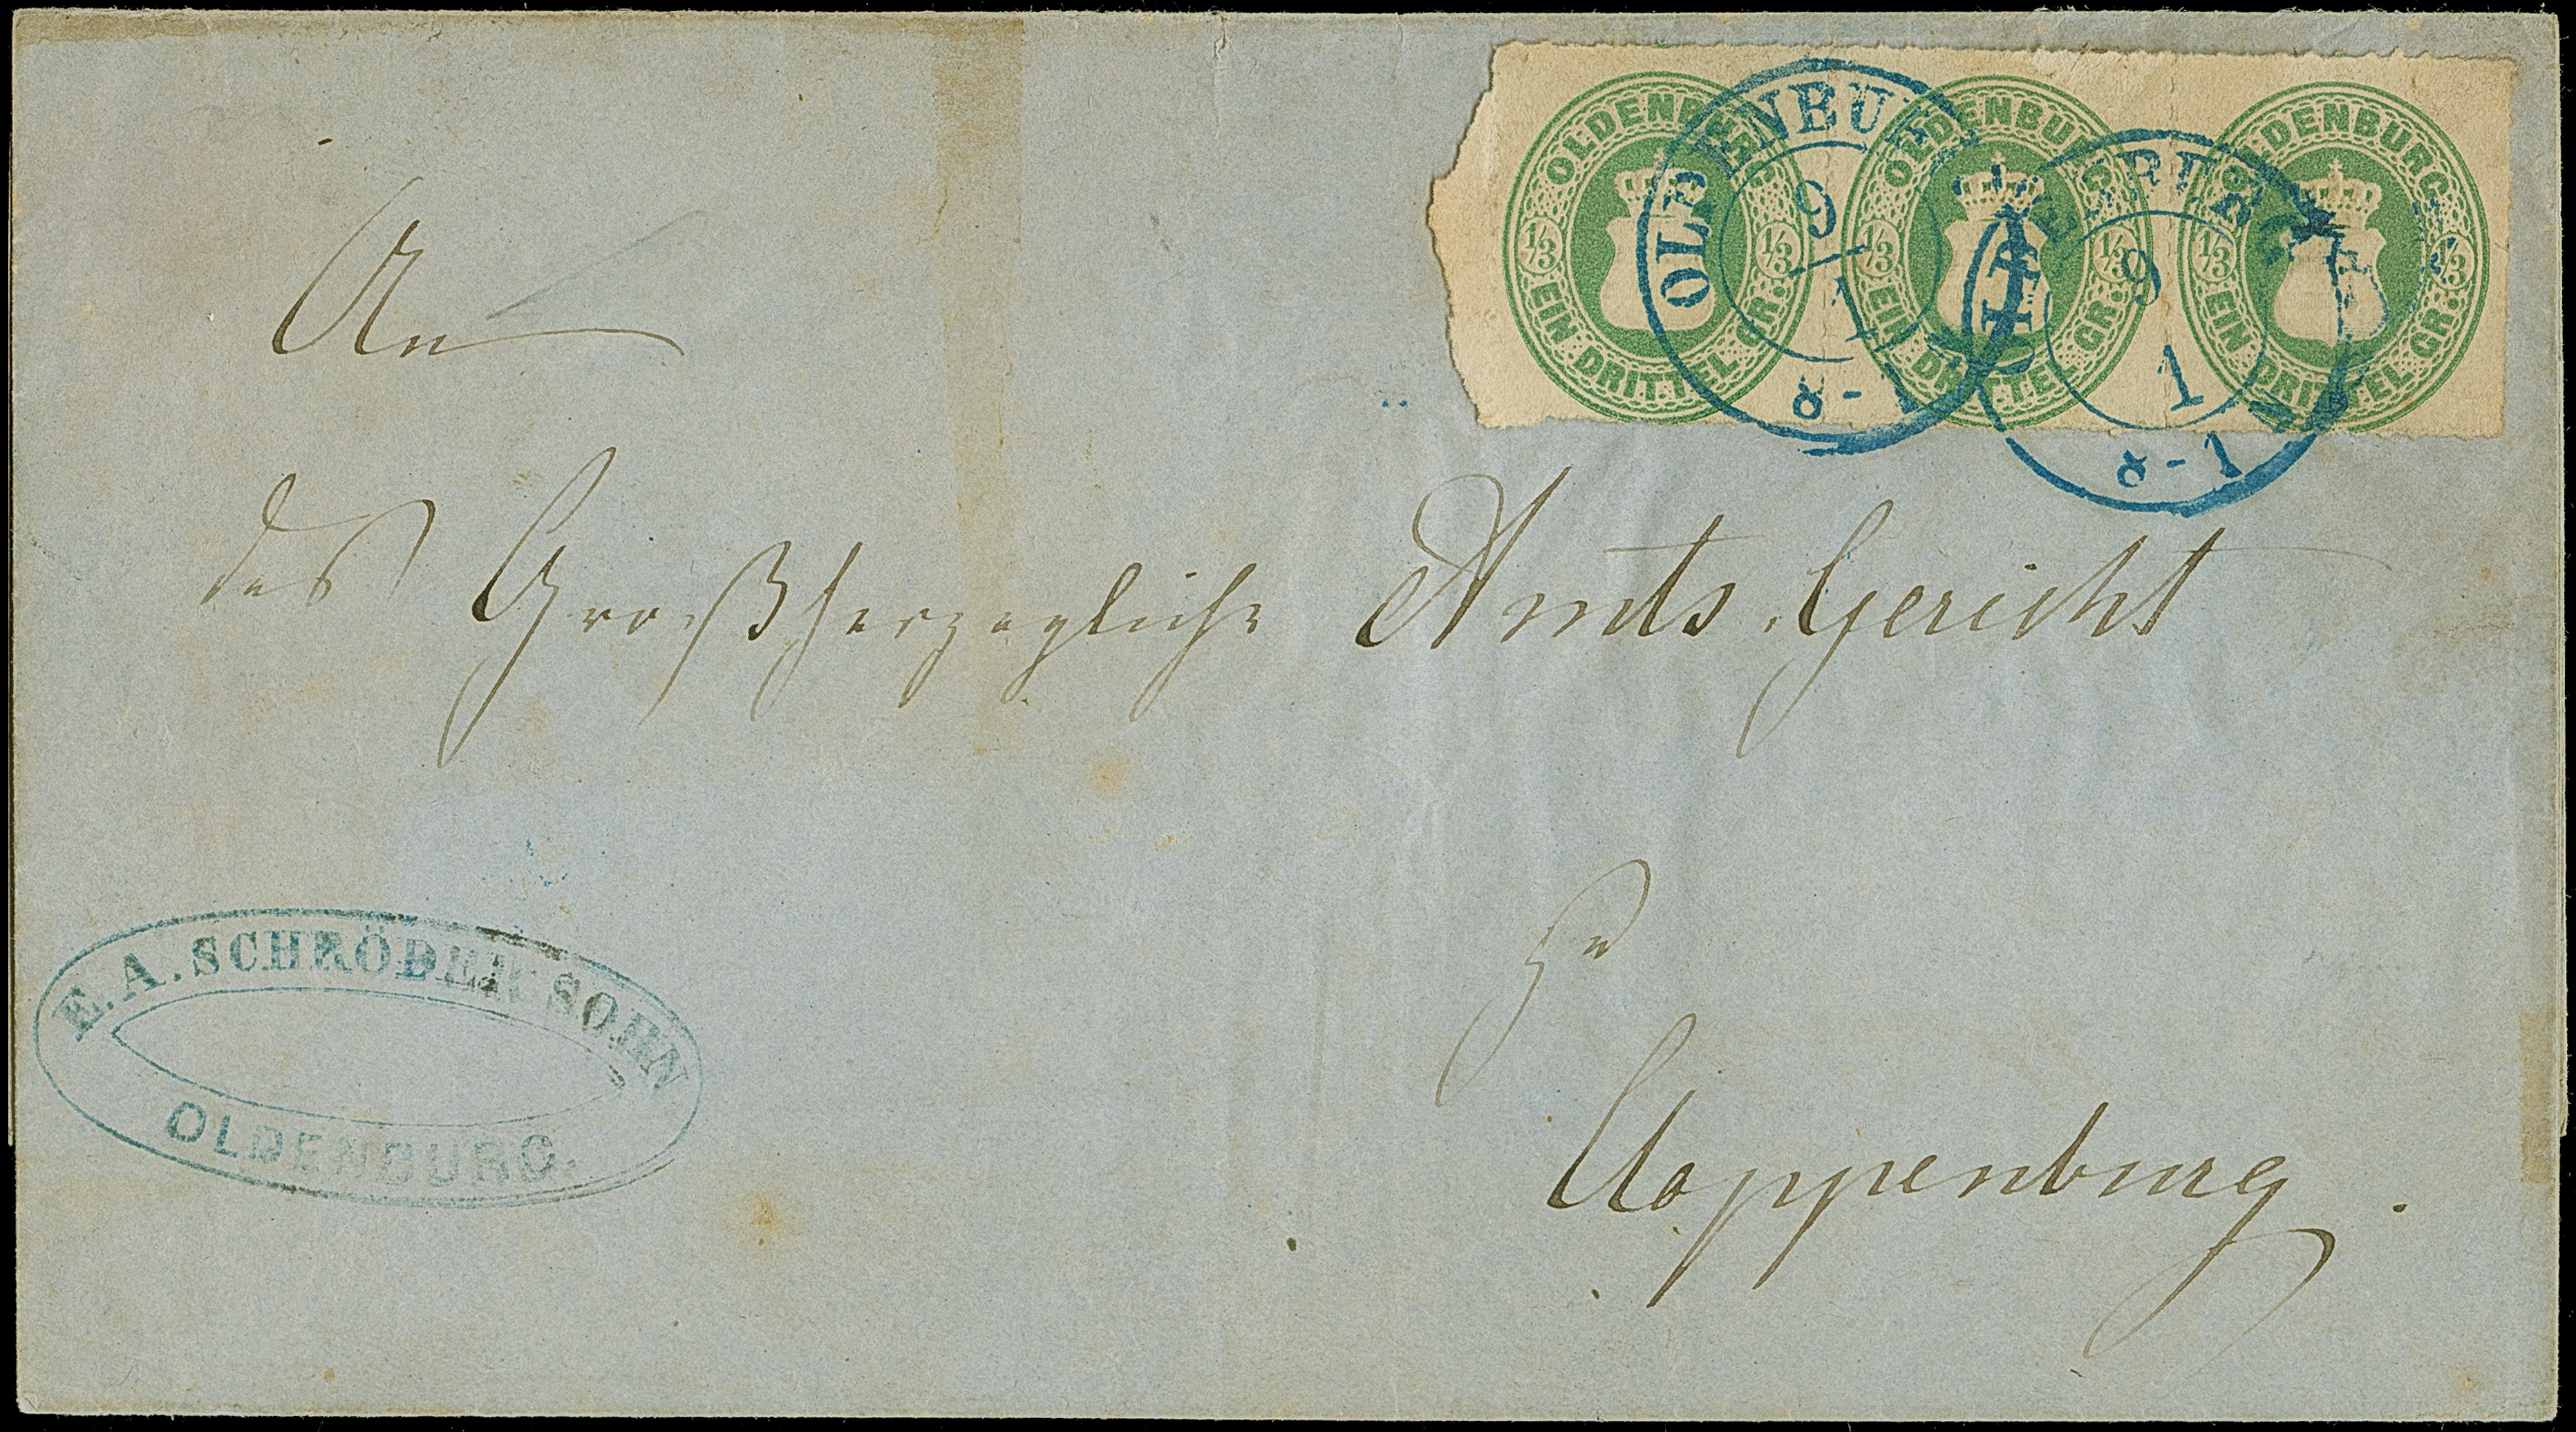 OLDENBURG
⅓ ⅓
EIN DRITTEL GR.
OLDENBURG
⅓ ⅓
EIN DRITTEL GR.
OLDENBURG
⅓ ⅓
EIN DRITTEL GR.
OLDENBURG
9/1
8-1
OLDENBURG
9
1
8-1
An
das Großherzogliche Amts Gericht
zu
Cloppenburg.
E. A. SCHRÖDER SOHN
OLDENBURG.